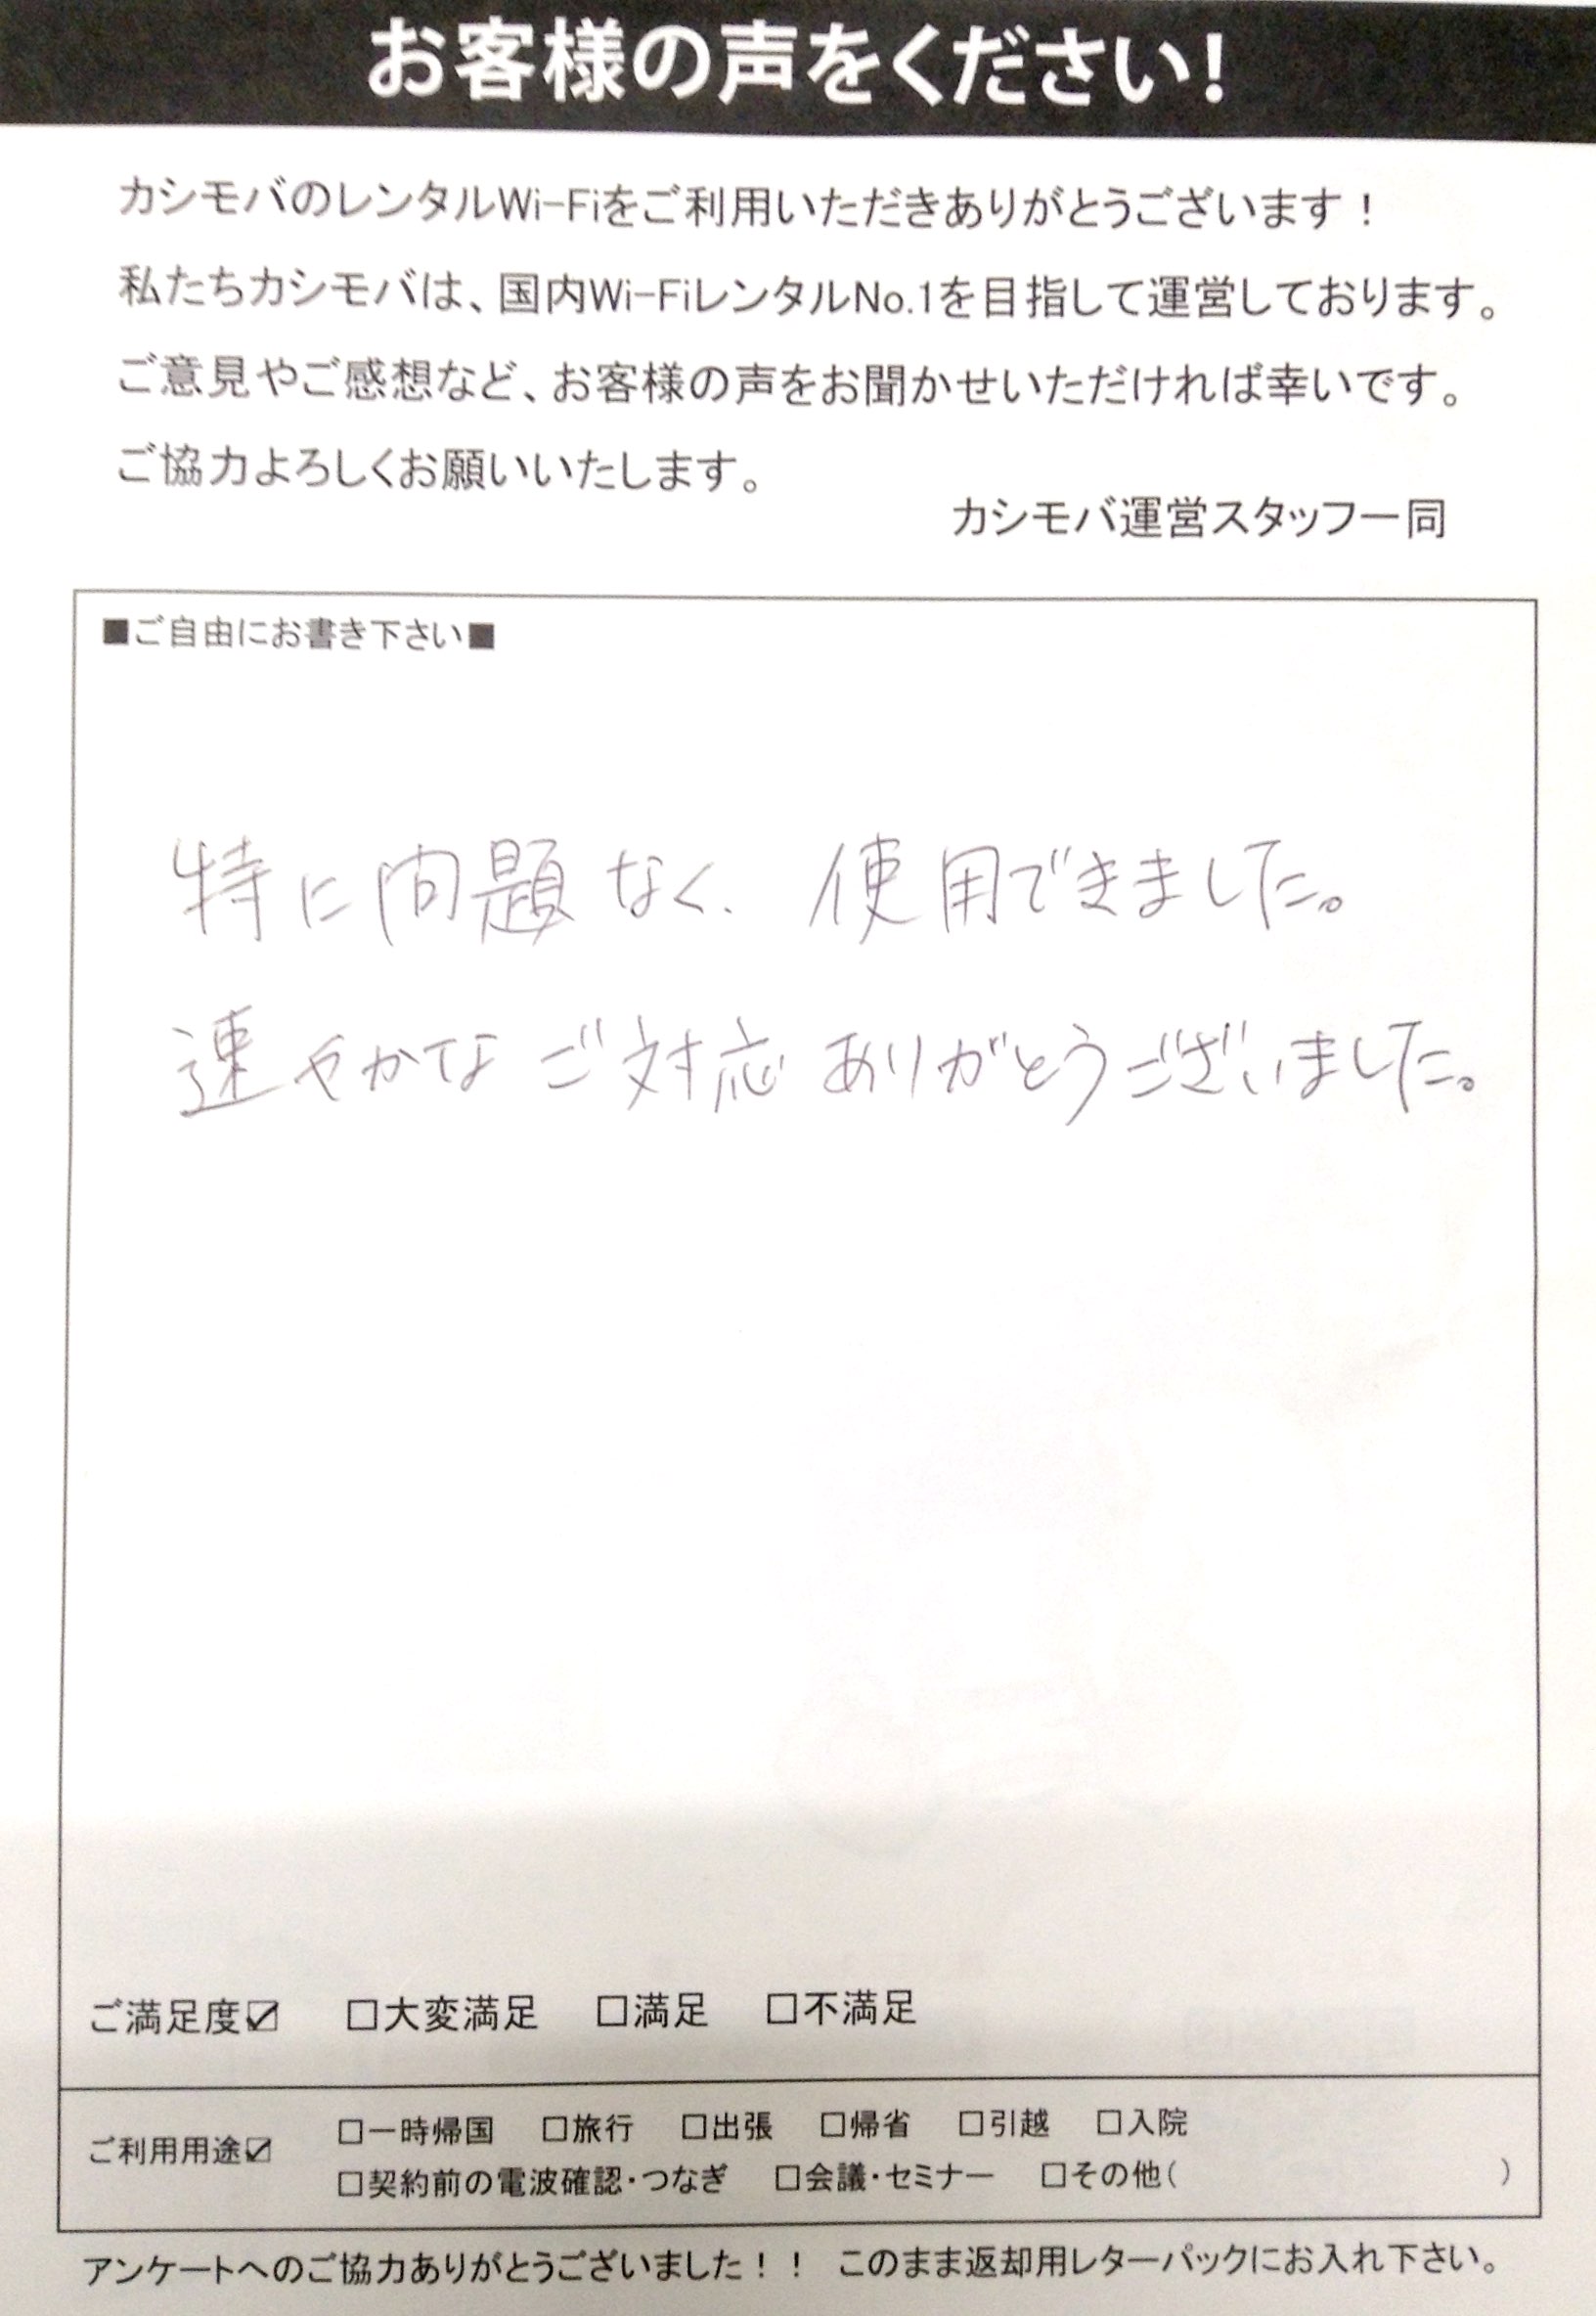 お客様の声をください!
カシモバのレンタルWi-Fiをご利用いただきありがとうございます！
私たちカシモバは、国内Wi-FiレンタルNo.1を目指して運営しております。
ご意見やご感想など、お客様の声をお聞かせいただければ幸いです。
ご協力よろしくお願いいたします。
カシモバ運営スタッフ一同
■ご自由にお書き下さい■
特に問題なく、使用できました。
速やかなご対応ありがとうございました。
ご満足度☑ □大変満足 □満足 □不満足
ご利用用途☑ □一時帰国 □旅行 □出張 □帰省 □引越 □入院
□契約前の電波確認・つなぎ □会議・セミナー □その他( )
アンケートへのご協力ありがとうございました！！ このまま返却用レターパックにお入れ下さい。